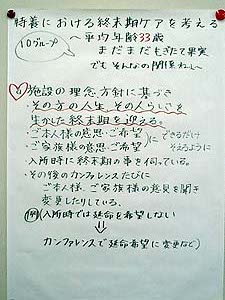 特養における終末期ケアを考える
10グループ
〜平均年齢33歳
まだまだもぎたて果実
でもそんなの関係ねぇ〜
施設の理念 方針に基づき
その方の人生、その人らしさを
生かした終末期を迎える。
・ご本人様の意思・ご希望
・ご家族様の意思・ご希望
にできるだけ
そえるように
・入所時に終末期の事を伺っている。
・その後のカンファレンスたびに
ご本人様、ご家族様の意見を聞き
変更したりしている。
例 (入所時では延命を希望しない
↓
カンファレンスで延命希望に変更など)